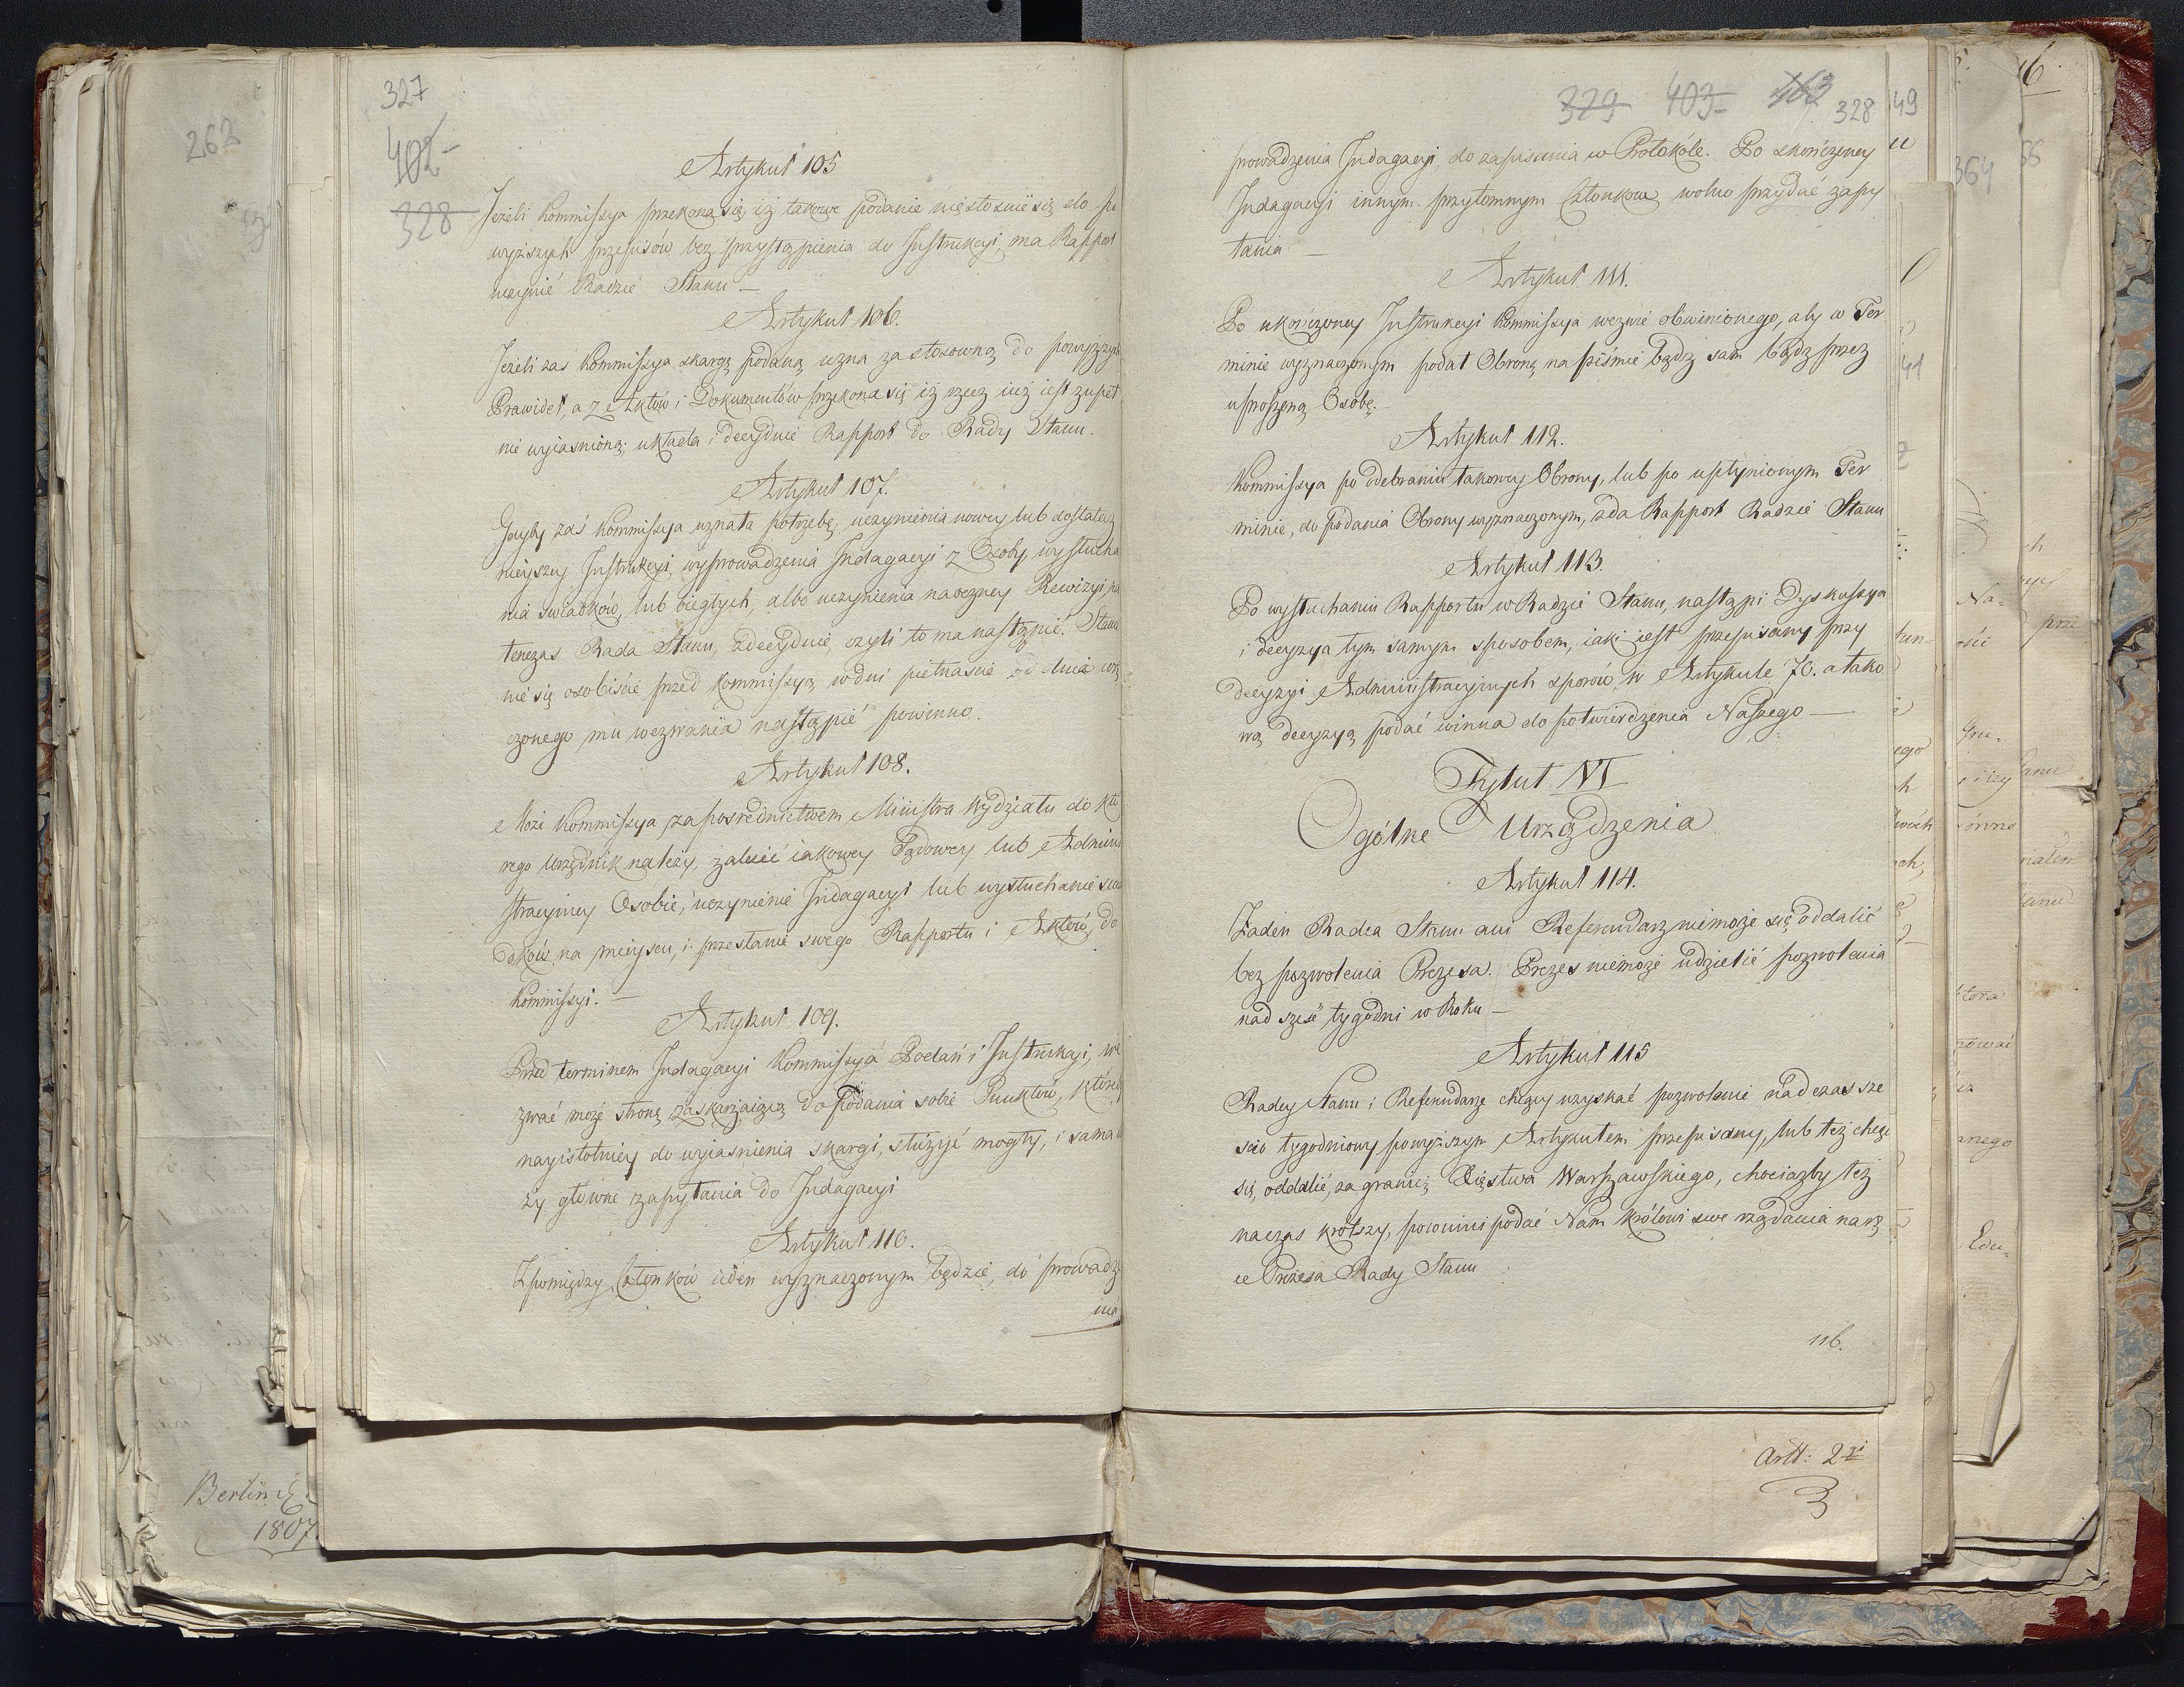 327
402
328
Artykuł 105
Jeżeli Kommissya przekona się, iż takowe podanie nie stosuie się do po
wyższych przepisów bez przystąpienia do Instrukcyi, ma Rapport
uczynić Radzie Stanu —
Artykuł 106.
Jeżeli zas Kommissya skargę podaną uzna za stosowną do powyższych
Prawideł, a z Aktów i Dokumentów przekona się iż rzecz iuż iest zupeł
nie wyiasnioną; układa i decyduie Rapport do Rady Stanu.
Artykuł 107.
Gdyby zaś Kommissya uznała potrzebę, uczynienia nowey lub dostatecz
nieyszey Instrukcyi, wyprowadzenia Indagacyi z Osoby, wysłucha
nia swiadków, lub biegłych, albo uczynienia naoczney Rewizyi, na
tenczas Rada Stanu, zdecyduie, czyli to ma nastąpić. Stawie
nie się osobiście przed Kommissyą, w dni pietnascie od dnia wrę
czonego mu wezwania nastąpić powinno.
Artykuł 108.
Może Kommissya za posrednictwem Ministra Wydziału do któ
rego Urzędnik należy, zalecić iakowey Sądowey lub Admini
stracyiney Osobie, uczynienie Indagacyi lub wysłuchanie swia
dków na mieyscu, i przesłanie swego Rapportu i Aktów, do
Kommissyi. —
Artykuł 109.
Przed terminem Indagacyi Kommissya Podań i Instrukcyi, we
zwać może stronę zaskarżaiącą do podania sobie Punktów, któreb
nayistotniey do wyiasnienia skargi, służyć mogły, i sama u
ży główne zapytania do Indagacyi
Artykuł 110.
Zpomiędzy Członków ieden wyznaczonym będzie, do prowadze
nia
329 403 463 328
prowadzenia Indagacyi, do zapisania w Protokóle. Po skończoney
Indagacyi innym przytomnym Członkom wolno przydać zapy
tania —
Artykuł 111.
Po ukończoney Instrukcyi Kommissya wezwie obwinionego, aby w Ter
minie wyznaczonym podał Obronę na piśmie bądz sam bądz przez
uproszoną Osobę.
Artykuł 112.
Kommissya po odebraniu takowey Obrony, lub po upłynionym Ter
minie, do podania Obrony wyznaczonym, zda Rapport Radzie Stanu
Artykuł 113.
Po wysłuchaniu Rapportu w Radzie Stanu, nastąpi Dyskussya
i decyzya tym samym sposobem, iaki iest przepisany przy
decyzyi Administracyinych sporów, w Artykule 70. a tako
wą decyzyą podać winna do potwierdzenia Naszego —
Tytuł VI
Ogólne Urządzenia
Artykuł 114.
Żaden Radca Stanu ani Referendarz niemoże się oddalić
bez pozwolenia Prezesa. Prezes niemoże udzielić pozwolenia
nad sześć tygodni w Roku —
Artykuł 115
Radcy Stanu i Referendarze chcący uzyskać pozwolenie nad czas sze
scio tygodniowy powyższym Artykułem przepisany, lub też chcąc
się, oddalić, za granicę Xięstwa Warszawskiego, chociażby też
na czas krótszy, powinni podać Nam Królowi swe rządania na rę
ce Prezesa Rady Stanu
116.
Artt: 2
262
Berlin
1807.
49
41
364